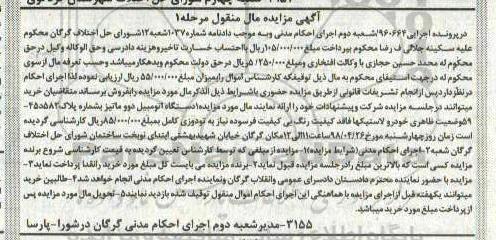 آگهی مزایده مال منقول مرحله۱
درپرونده اجرایی۹۶۰۶۶۴/شعبه دوم اجرای احکام مدنی وبه موجب دادنامه شماره۱۰۳۷شعبه۱۲شورای حل اختلاف گرگان محکوم
علیه سکینه جلالی ف رضا محکوم بپرداخت مبلغ۱۰۵/۰۰۰/۰۰۰ریال بااحتساب خسارت تاخیروهزینه دادرسی وحق الوکاله وکیل درحق
محکوم له محمد حسین حجازی با وکالت افتخاری ومبلغ۵/۲۵۰/۰۰۰ریال درحق دولت محکوم وبدهکارمیباشد وحسب تعرفه مال ازسوی
محکوم له درجهت استیفای محکوم به مال ذیل توقیفکه کارشناس اموال رابمیزان مبلغ۵۵/۰۰۰/۰۰۰ریال ارزیابی نموده لذا اجرای احکام
درنظرداردپس ازانجام تشریفات قانونی ازطریق مزایده حضوری باشرایط ذیل الذکرمال موردمزایده رابفروش برساند متقاضیان خرید
میتوانند درجلسه مزایده شرکت وپیشنهادات خود را ارائه نمایند مال مورد مزایده:۱دستگاه اتومبیل دوو ماتیز بشماره پلاک۲۵۵د۸۲-
۵۹وضعیت ظاهری خودرو لاستیکها فاقد کیفیت رنگی بی کیفیت فرسوده نیاز به تودوزی کامل بمبلغ۸۵/۰۰۰/۰۰۰ریال کارشناسی گردیده
است زمان روزچهارشنبه مورخ۹۸/۰۴/۲۶ساعت۱۱الی۱۲مکان گرگان خیابان شهیدبهشتی ابتدای نوبخت ساختمان شورای حل اختلاف
گرگان شعبه۲-اجرای احکام مدنی(شرایط مزایده)۱-مزایده از مبلغی که توسط کارشناس تعیین گردیده به قیمت کارشناسی شروع برنده
مزایده کسی است که بالاترین مبلغ رادرجلسه مزایده قبول نماید۲-برنده مزایده می بایست کل مبلغ مورد خرید رانقدا پرداخت نماید۳-
مزایده با حضور نماینده محترم دادستان دادسرای عمومی وانقلاب گرگان ونماینده اجرای احکام مدنی انجام خواهد شد۴-طالبین خرید
میتوانند یکهفته قبل ازاجرای مزایده با هماهنگی این اجرای احکام اموال منقول توقیف شده بازدید نمایند۵-تحویل مال مورد مزایده پس
ازپرداخت مبلغ مورد خرید میباشد.
۳۱۵۵-مدیرشعبه دوم اجرای احکام مدنی گرگان درشورا-پارسا